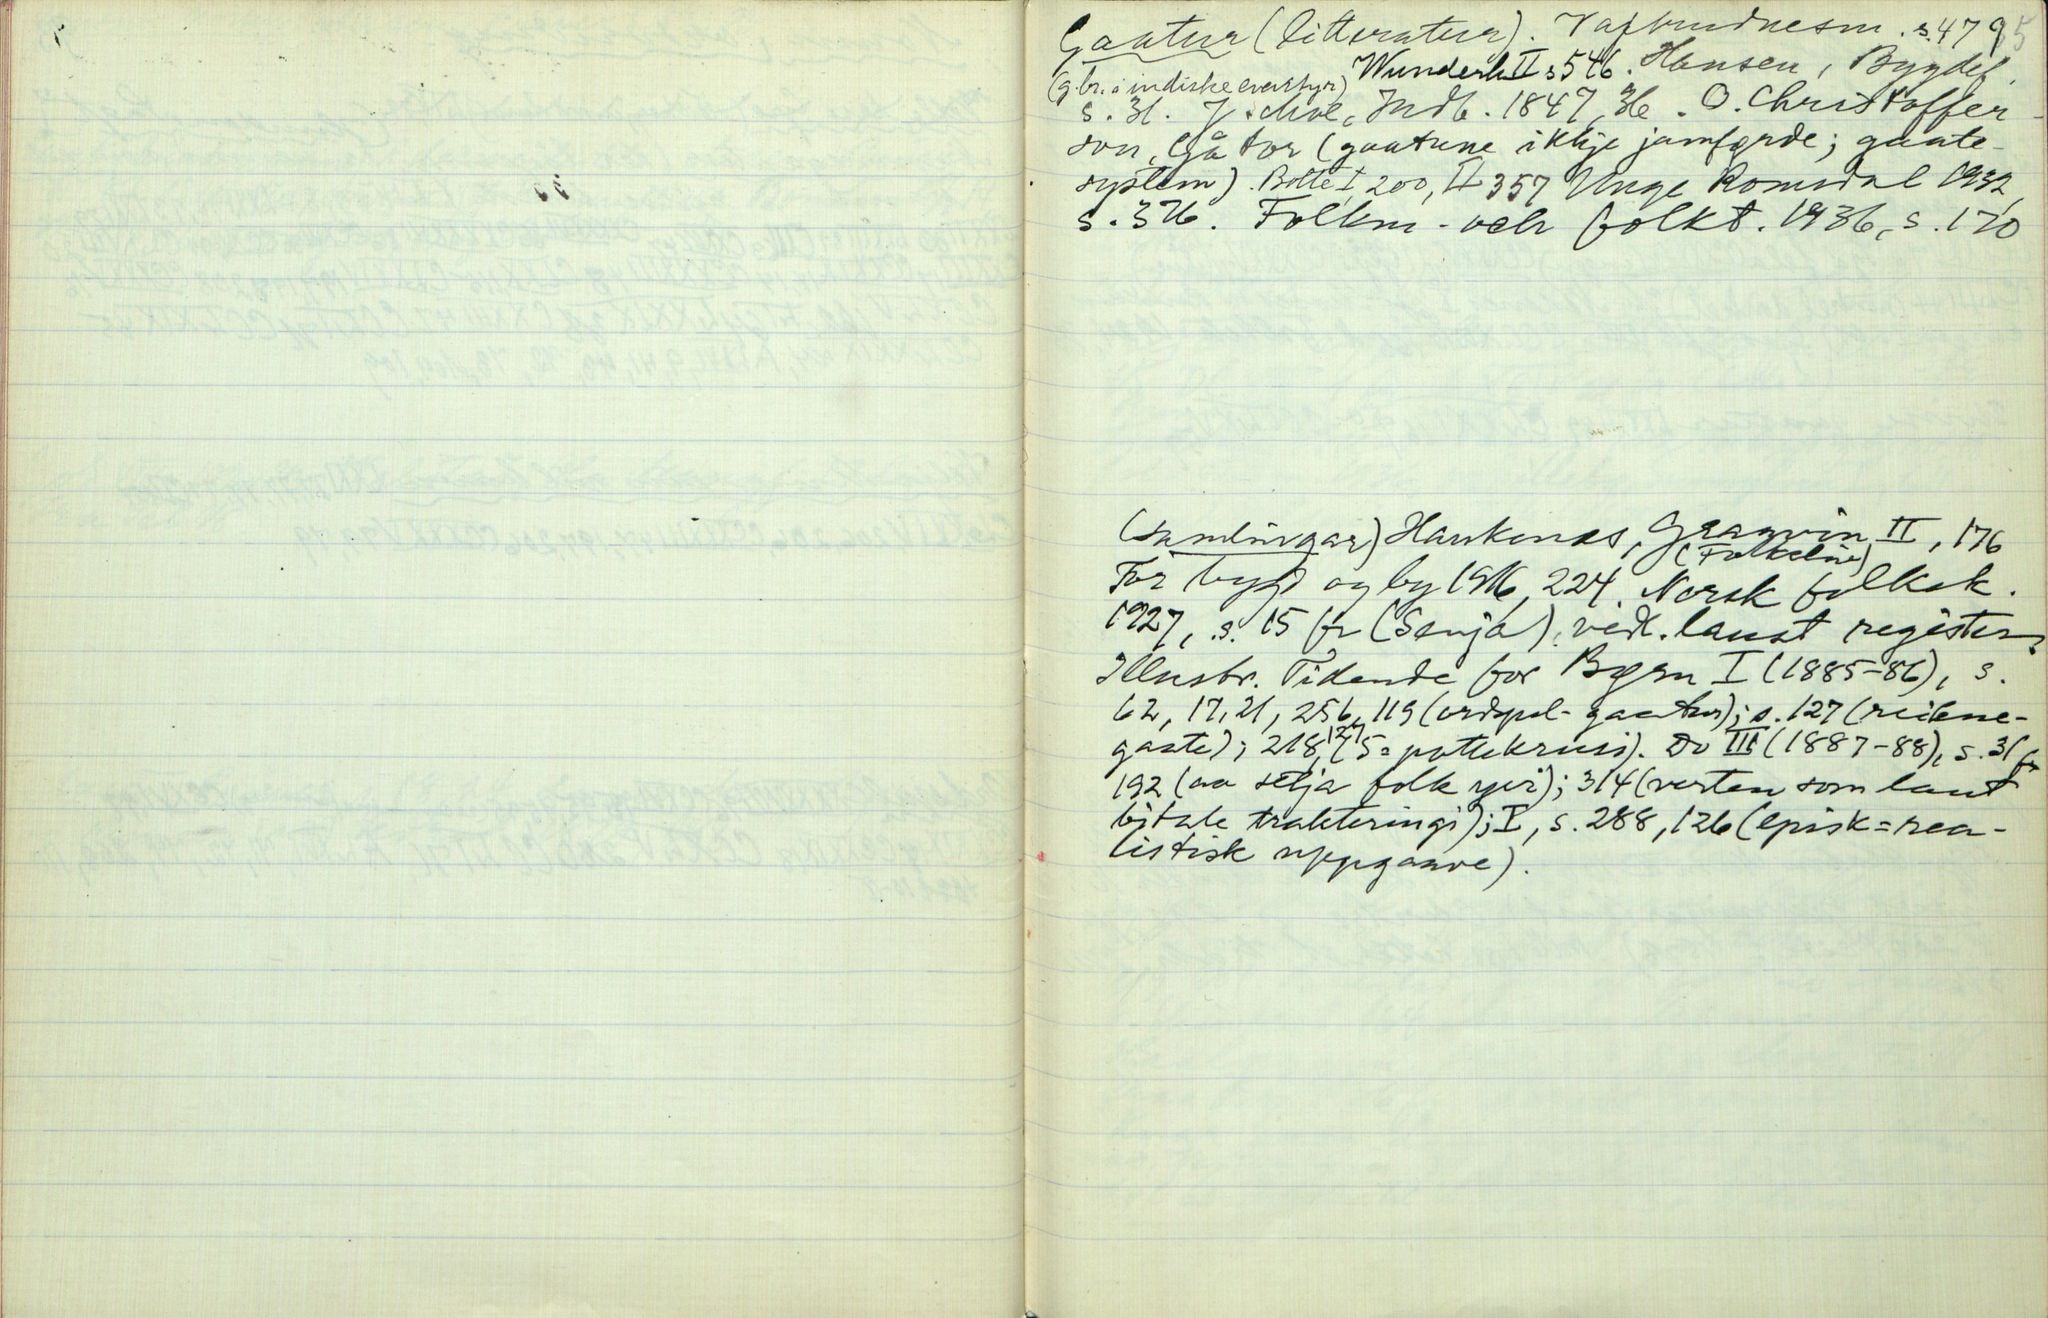 Gaatur (litteratur). Vafþrudnesm. s. 479 95
(g. br. i indiske eventyr) Wunderh II s 546. Hansen, Bygdef.
s. 31. J. Moe, Indb. 1847, 36. O. Christoffer-
son, Gåtor (gaatune ikkje jamførde; gaate-
system). Bolte I, 200, II 357 Unge Romsdal 1932,
s. 376. Folkm. och folkt. 1936, s. 170
(samlingar) Haukenæs, Graavin II, 176
(Folkeliv)
For bygd og by 1916, 224. Norsk folkek.
1927, s. 15 fr (Senja), vedl. laust register.
Illustr. Tidende for Børn I (1885-86), s.
62, 17, 21, 256, 119 (ordspel-gaatur); s. 127 (reikne-
gaate); 218, 127 (5 = pottekrusi). Do III (1887-88), s. 31 fr
192 (aa setja folk yvi); 314 (verten som laut
bitale trakteringi); I, s. 288, 126 (episk = rea-
listisk uppgaave).